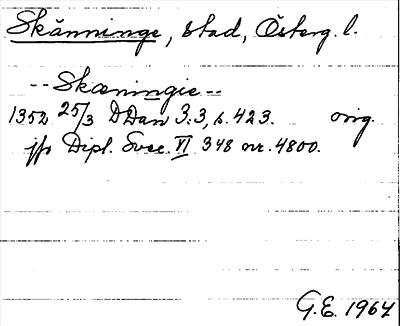 Skänninge, stad, Österg. l.
-- Skæningie --
1352 25/3 DDan 3.3, s. 423. orig.
jfr Dipl. Svec. VI 348 nr. 4800.
G.E. 1964